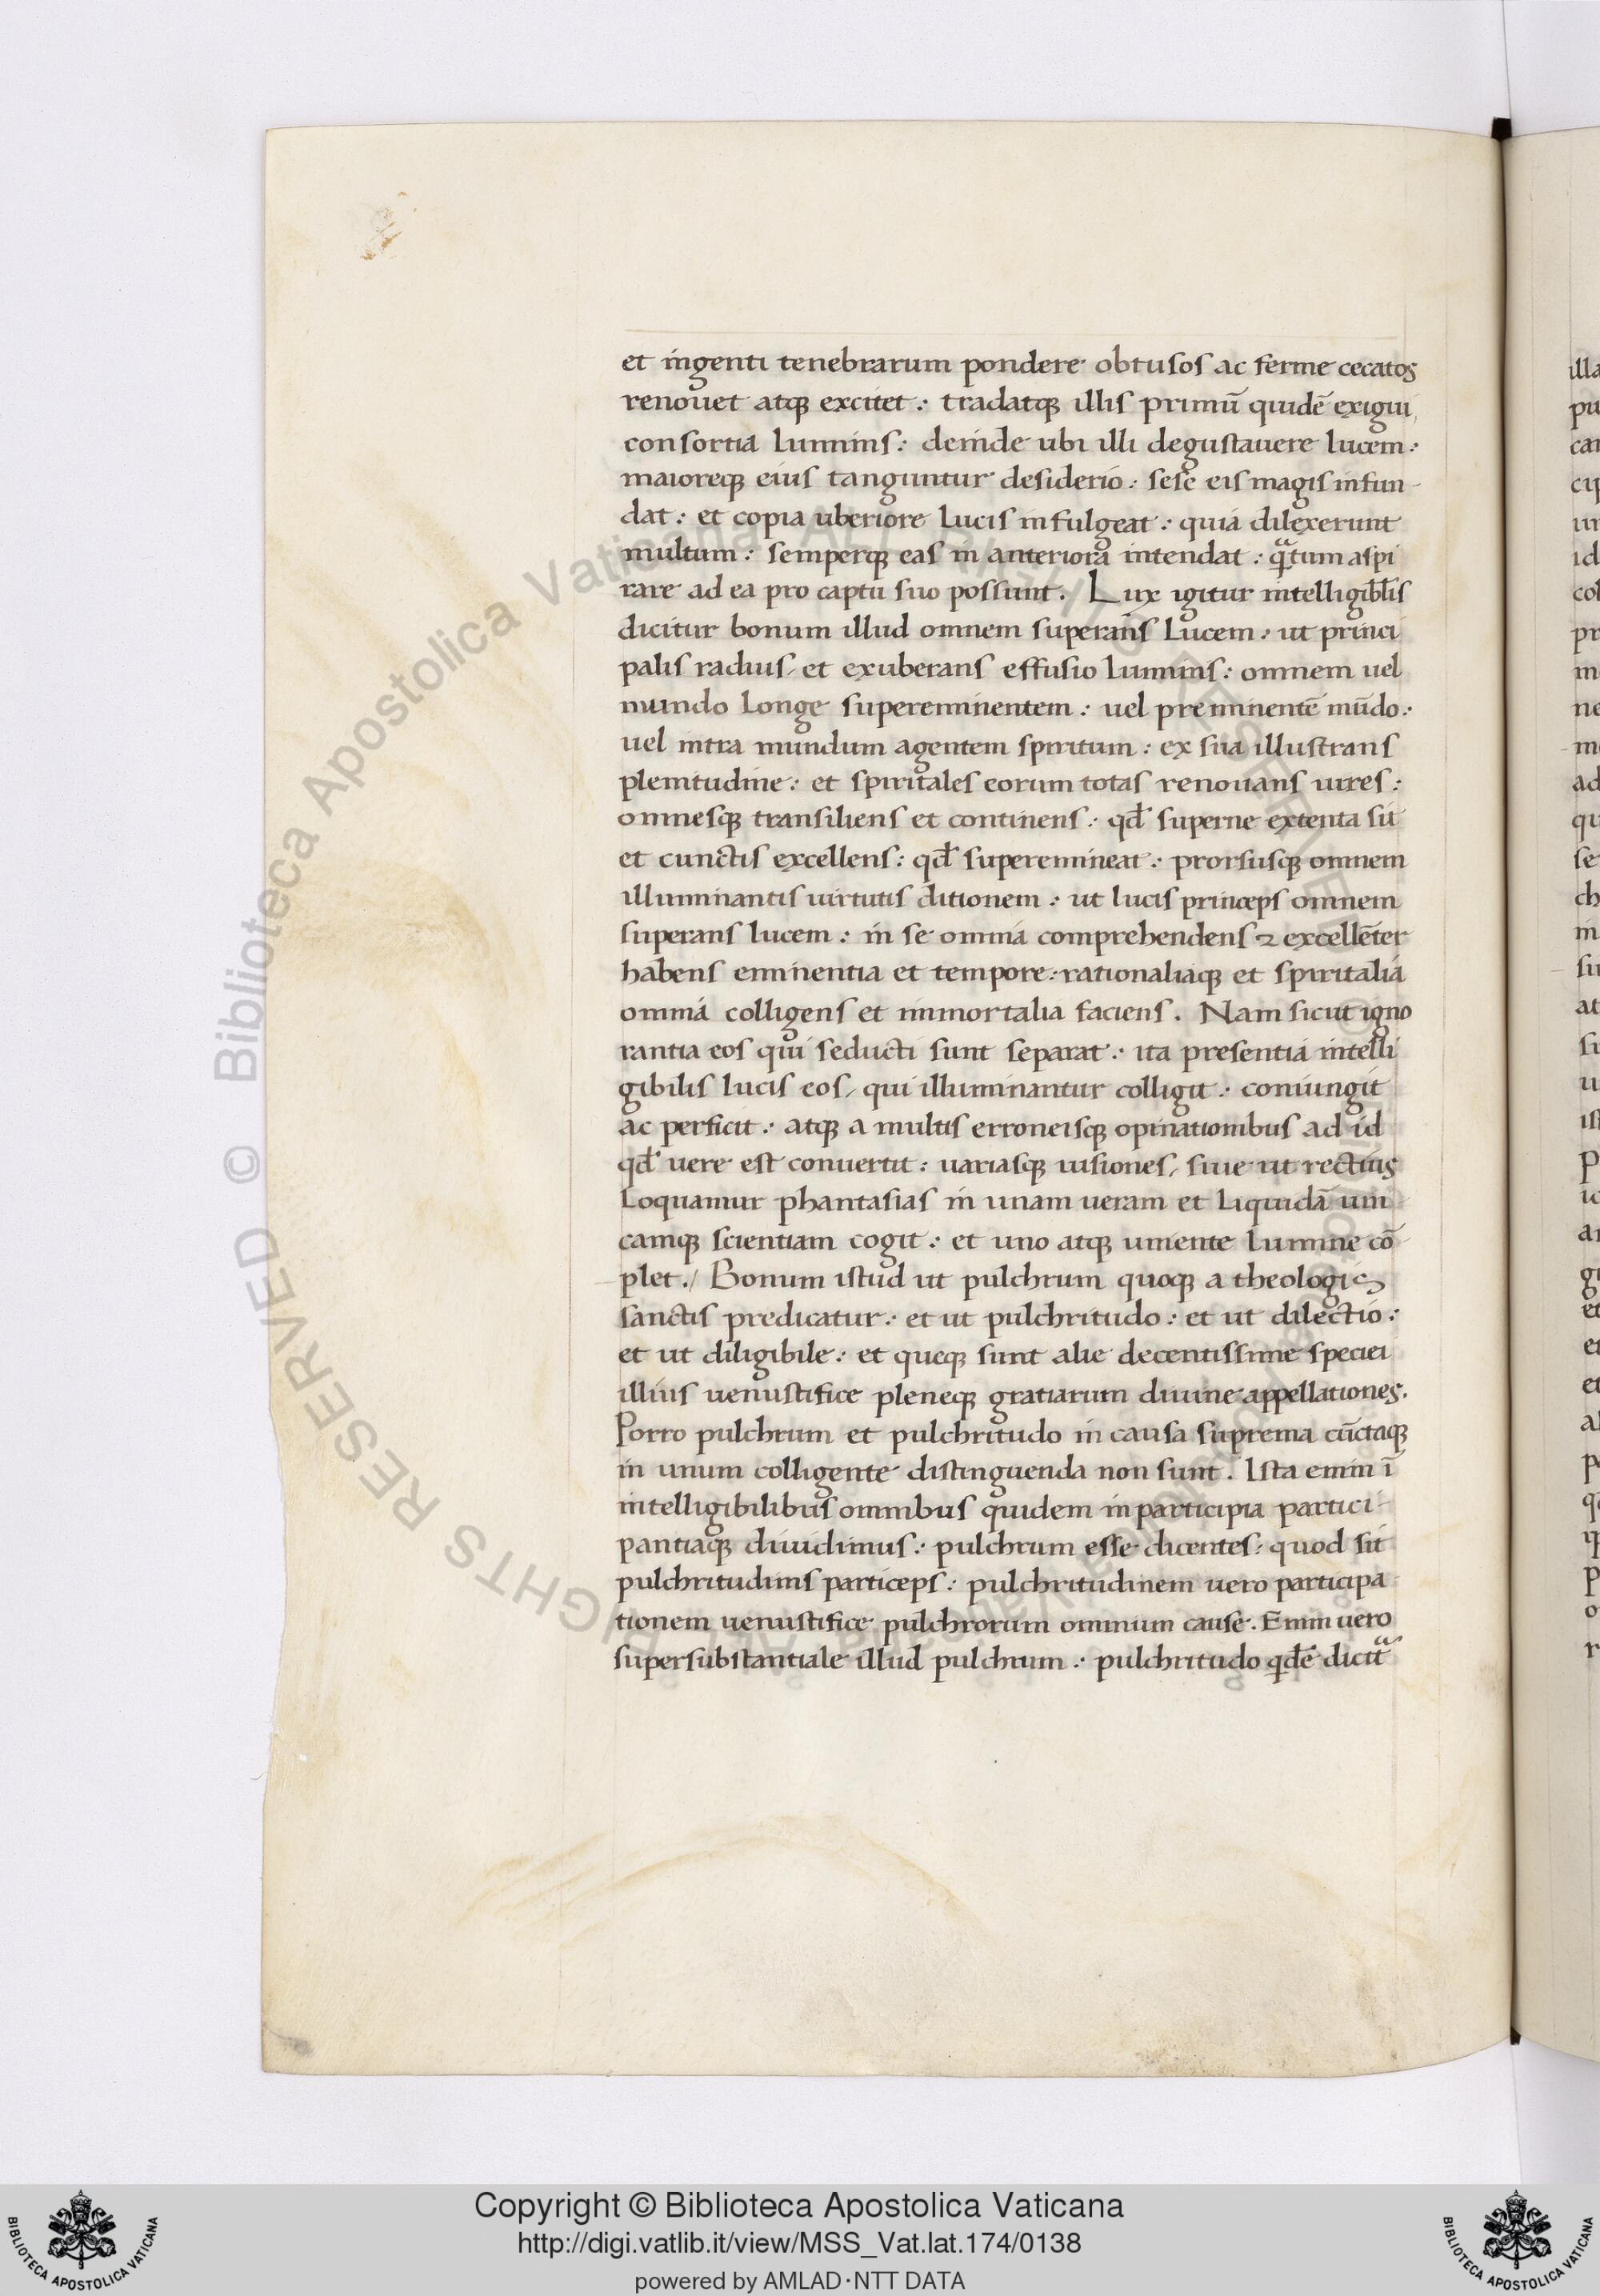 et ingenti tenebrarum pondere obtusos ac ferme cecatos
renouet atqꝫ excitet : tradatqꝫ illis primū quidē exigui
consortia luminis : deinde ubi illi degustauere lucem :
maioreqꝫ eius tanguntur desiderio : sese eis magis infun-
dat : et copia uberiore lucis infulgeat : quia dilexerunt
multum : semperqꝫ eas in anteriora intendat : qᷓtum aspi
rare ad ea pro captu suo possunt . Lux igitur intelligibl̄is
dicitur bonum illud omnem superans lucem : ut princi
palis radius / et exuberans effusio luminis : omnem uel
mundo longe supereminentem : uel preminentē mūdo :
uel intra mundum agentem spiritum : ex sua illustrans
plenitudine : et spiritales eorum totas renouans uires :
omnesqꝫ transiliens et continens : qd̄ superne extenta sit
et cunctis excellens : qd̄ superemineat : prorsusqꝫ omnem
illuminantis uirtutis ditionem : ut lucis princeps omnem
superans lucem : in se omnia comprehendens ⁊ excellēter
habens eminentia et tempore : rationaliaqꝫ et spiritalia
omnia colligens et immortalia faciens . Nam sicut igno
rantia eos qui seducti sunt separat : ita presentia intelli
gibilis lucis eos / qui illuminantur colligit : coniungit
ac perficit : atqꝫ a multis erroneisqꝫ opinationibus ad id
qd̄ uere est conuertit : uariasqꝫ uisiones / siue ut rectius
loquamur phantasias in unam ueram et liquidā uni
camqꝫ scientiam cogit : et uno atqꝫ uniente lumine cō
plet . / Bonum istud ut pulchrum quoqꝫ a theologis
sanctis predicatur : et ut pulchritudo : et ut dilectio :
et ut diligibile : et queqꝫ sunt alie decentissime speciei
illius uenustifice pleneqꝫ gratiarum diuine appellationes .
Porro pulchrum et pulchritudo in causa suprema cūctaqꝫ
in unum colligente distinguenda non sunt . Ista enim ī
intelligibilibus omnibus quidem in participia partici-
pantiaqꝫ diuidimus : pulchrum esse dicentes : quod sit
pulchritudinis particeps : pulchritudinem uero participa
tionem uenustifice pulchrorum omnium cause . Enim uero
supersubstantiale illud pulchrum : pulchritudo qd̄ē dicit᷑
© Biblioteca Apostolica Vaticana ALL RIGHTS RESERVED
Copyright © Biblioteca Apostolica Vaticana
http://digi.vatlib.it/view/MSS_Vat.lat.174/0138
powered by AMLAD·NTT DATA
BIBLIOTECA APOSTOLICA VATICANA
BIBLIOTECA APOSTOLICA VATICANA